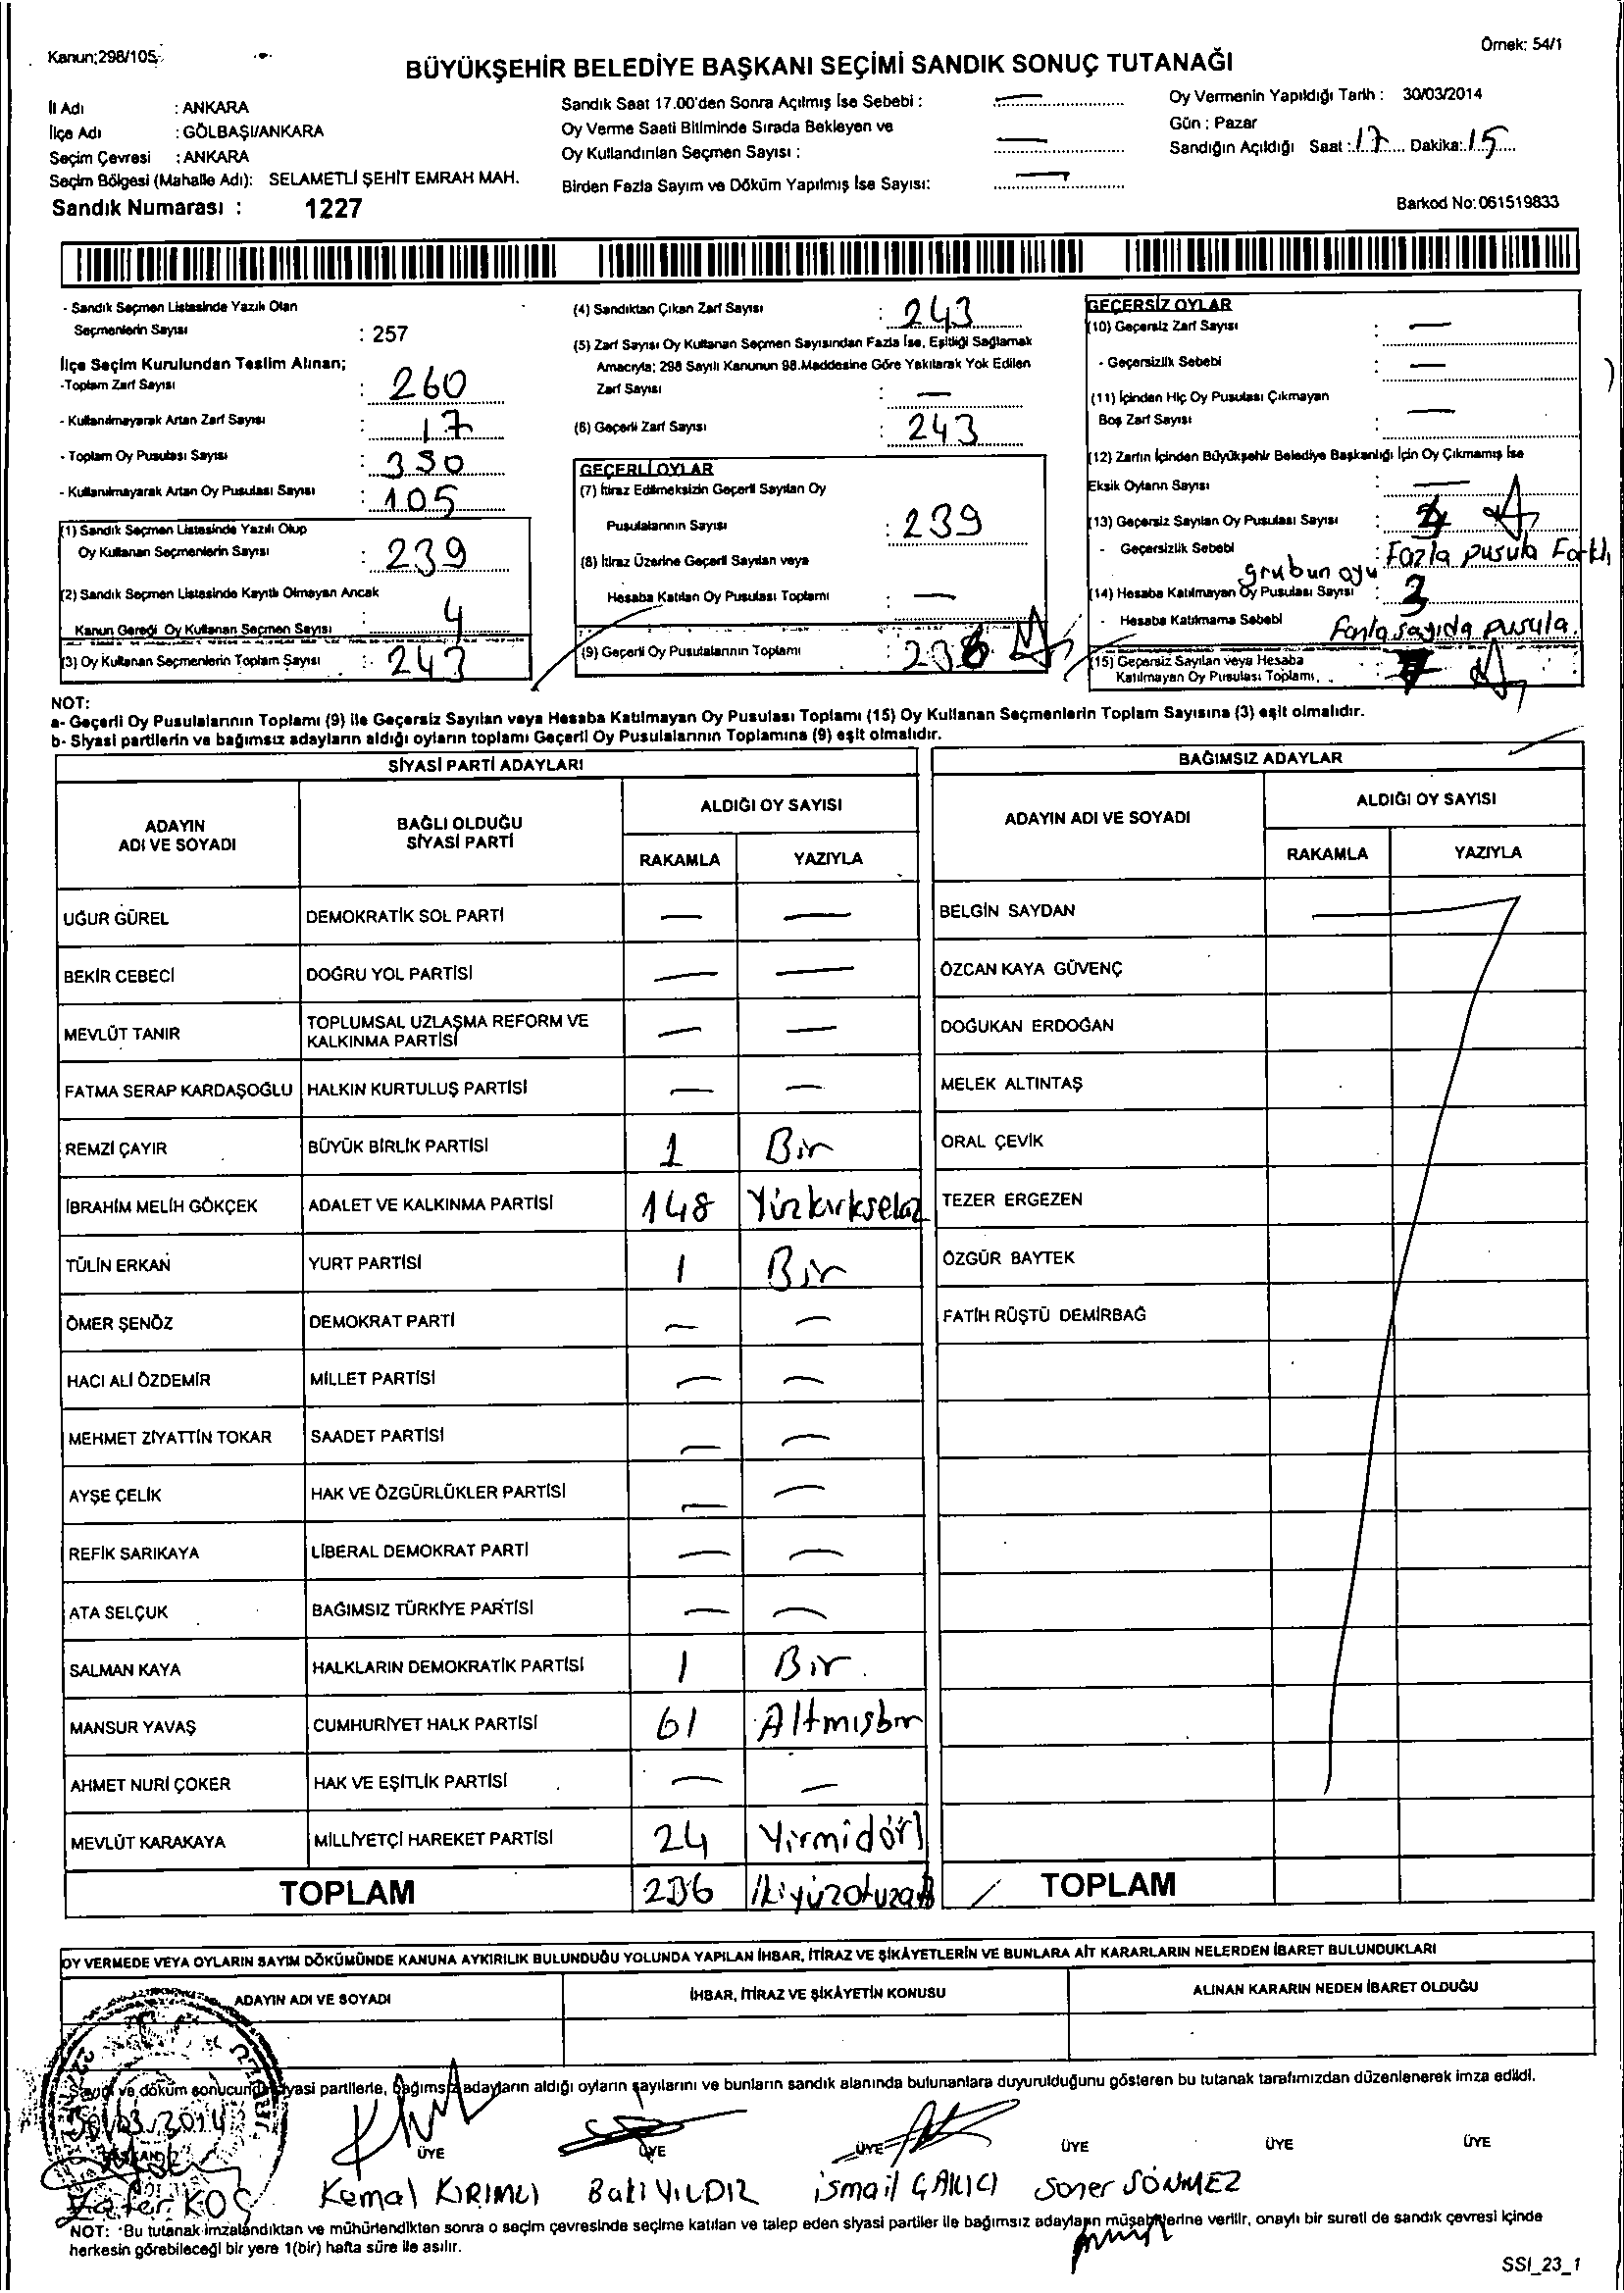 Kanun;298/105
Örnek: 54/1
BÜYÜKŞEHİR BELEDİYE BAŞKANI SEÇİMİ SANDIK SONUÇ TUTANAĞI
İl Adı : ANKARA
İlçe Adı : GÖLBAŞI/ANKARA
Seçim Çevresi : ANKARA
Seçim Bölgesi (Mahalle Adı): SELAMETLİ ŞEHİT EMRAH MAH.
Sandık Numarası : 1227
Sandık Saat 17.00'den Sonra Açılmış İse Sebebi : —
Oy Verme Saati Bitiminde Sırada Bekleyen ve
Oy Kullandırılan Seçmen Sayısı : —
Birden Fazla Sayım ve Döküm Yapılmış İse Sayısı: —
Oy Vermenin Yapıldığı Tarih : 30/03/2014
Gün : Pazar
Sandığın Açıldığı Saat : 17 Dakika: 15
Barkod No: 061519833
- Sandık Seçmen Listesinde Yazılı Olan
Seçmenlerin Sayısı : 257
İlçe Seçim Kurulundan Teslim Alınan;
-Toplam Zarf Sayısı : 260
- Kullanılmayarak Artan Zarf Sayısı : 17
- Toplam Oy Pusulası Sayısı : 350
- Kullanılmayarak Artan Oy Pusulası Sayısı : 105
(1) Sandık Seçmen Listesinde Yazılı Olup
Oy Kullanan Seçmenlerin Sayısı : 239
(2) Sandık Seçmen Listesinde Kayıtlı Olmayan Ancak
Kanun Gereği Oy Kullanan Seçmen Sayısı : 4
(3) Oy Kullanan Seçmenlerin Toplam Sayısı : 243
(4) Sandıktan Çıkan Zarf Sayısı : 243
(5) Zarf Sayısı Oy Kullanan Seçmen Sayısından Fazla İse, Eşitliği Sağlamak
Amacıyla; 298 Sayılı Kanunun 98.Maddesine Göre Yakılarak Yok Edilen
Zarf Sayısı : —
(6) Geçerli Zarf Sayısı : 243
GEÇERLİ OYLAR
(7) İtiraz Edilmeksizin Geçerli Sayılan Oy
Pusulalarının Sayısı : 239
(8) İtiraz Üzerine Geçerli Sayılan veya
Hesaba Katılan Oy Pusulası Toplamı : —
(9) Geçerli Oy Pusulalarının Toplamı : 236
GEÇERSİZ OYLAR
(10) Geçersiz Zarf Sayısı : —
- Geçersizlik Sebebi : —
(11) İçinden Hiç Oy Pusulası Çıkmayan
Boş Zarf Sayısı : —
(12) Zarfın İçinden Büyükşehir Belediye Başkanlığı İçin Oy Çıkmamış İse
Eksik Oyların Sayısı : —
(13) Geçersiz Sayılan Oy Pusulası Sayısı : 4
- Geçersizlik Sebebi : Fazla pusula Farklı
grubun oyu
(14) Hesaba Katılmayan Oy Pusulası Sayısı : 3
- Hesaba Katılmama Sebebi Fazla sayıda pusula.
(15) Geçersiz Sayılan veya Hesaba
Katılmayan Oy Pusulası Toplamı. : 7
NOT:
a- Geçerli Oy Pusulalarının Toplamı (9) ile Geçersiz Sayılan veya Hesaba Katılmayan Oy Pusulası Toplamı (15) Oy Kullanan Seçmenlerin Toplam Sayısına (3) eşit olmalıdır.
b- Siyasi partilerin ve bağımsız adayların aldığı oyların toplamı Geçerli Oy Pusulalarının Toplamına (9) eşit olmalıdır.
SİYASİ PARTİ ADAYLARI
ADAYIN ADI VE SOYADI
BAĞLI OLDUĞU SİYASİ PARTİ
ALDIĞI OY SAYISI
RAKAMLA YAZIYLA
UĞUR GÜREL DEMOKRATİK SOL PARTİ — —
BEKİR CEBECİ DOĞRU YOL PARTİSİ — —
MEVLÜT TANIR TOPLUMSAL UZLAŞMA REFORM VE KALKINMA PARTİSİ — —
FATMA SERAP KARDAŞOĞLU HALKIN KURTULUŞ PARTİSİ — —
REMZİ ÇAYIR BÜYÜK BİRLİK PARTİSİ 1 Bir
İBRAHİM MELİH GÖKÇEK ADALET VE KALKINMA PARTİSİ 148 Yüzkırksekiz
TÜLİN ERKAN YURT PARTİSİ 1 Bir
ÖMER ŞENÖZ DEMOKRAT PARTİ — —
HACI ALİ ÖZDEMİR MİLLET PARTİSİ — —
MEHMET ZİYATTİN TOKAR SAADET PARTİSİ — —
AYŞE ÇELİK HAK VE ÖZGÜRLÜKLER PARTİSİ — —
REFİK SARIKAYA LİBERAL DEMOKRAT PARTİ — —
ATA SELÇUK BAĞIMSIZ TÜRKİYE PARTİSİ — —
SALMAN KAYA HALKLARIN DEMOKRATİK PARTİSİ 1 Bir
MANSUR YAVAŞ CUMHURİYET HALK PARTİSİ 61 Altmışbir
AHMET NURİ ÇOKER HAK VE EŞİTLİK PARTİSİ — —
MEVLÜT KARAKAYA MİLLİYETÇİ HAREKET PARTİSİ 24 Yirmidört
TOPLAM 236 İkiyüzotuzaltı
BAĞIMSIZ ADAYLAR
ADAYIN ADI VE SOYADI
ALDIĞI OY SAYISI
RAKAMLA YAZIYLA
BELGİN SAYDAN
ÖZCAN KAYA GÜVENÇ
DOĞUKAN ERDOĞAN
MELEK ALTINTAŞ
ORAL ÇEVİK
TEZER ERGEZEN
ÖZGÜR BAYTEK
FATİH RÜŞTÜ DEMİRBAĞ
TOPLAM
OY VERMEDE VEYA OYLARIN SAYIM DÖKÜMÜNDE KANUNA AYKIRILIK BULUNDUĞU YOLUNDA YAPILAN İHBAR, İTİRAZ VE ŞİKÂYETLERİN VE BUNLARA AİT KARARLARIN NELERDEN İBARET BULUNDUKLARI
ADAYIN ADI VE SOYADI İHBAR, İTİRAZ VE ŞİKÂYETİN KONUSU ALINAN KARARIN NEDEN İBARET OLDUĞU
Sayım ve döküm sonucunda siyasi partilerle, bağımsız adayların aldığı oyların sayılarını ve bunların sandık alanında bulunanlara duyurulduğunu gösteren bu tutanak tarafımızdan düzenlenerek imza edildi.
30/03/2014
BAŞKAN ÜYE ÜYE ÜYE ÜYE ÜYE ÜYE
Zafer KOÇ Kemal KIRIMLI Baki YILDIZ İsmail ÇAKICI Soner SÖNMEZ
NOT: Bu tutanak imzalandıktan ve mühürlendikten sonra o seçim çevresinde seçime katılan ve talep eden siyasi partiler ile bağımsız adayların müşahitlerine verilir, onaylı bir sureti de sandık çevresi içinde
herkesin görebileceği bir yere 1(bir) hafta süre ile asılır.
SSI_23_1